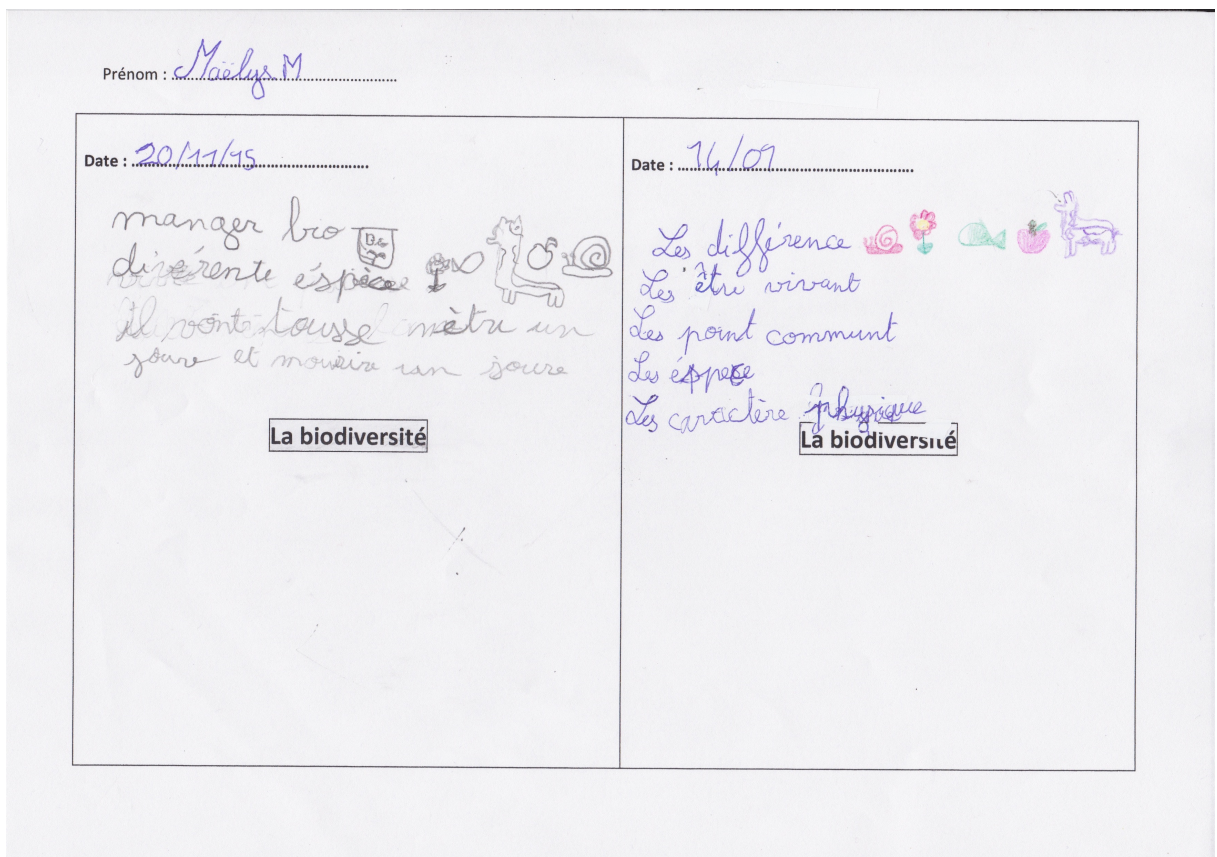 Prénom : Maëlys M
Date : 20/11/15
manger bio
diférente éspèce
il vont tousse mètre un
joure et mourire un joure
La biodiversité
Date : 14/01
Les différence
Les être vivant
Les point communt
Les éspece
Les caractère physique
La biodiversité